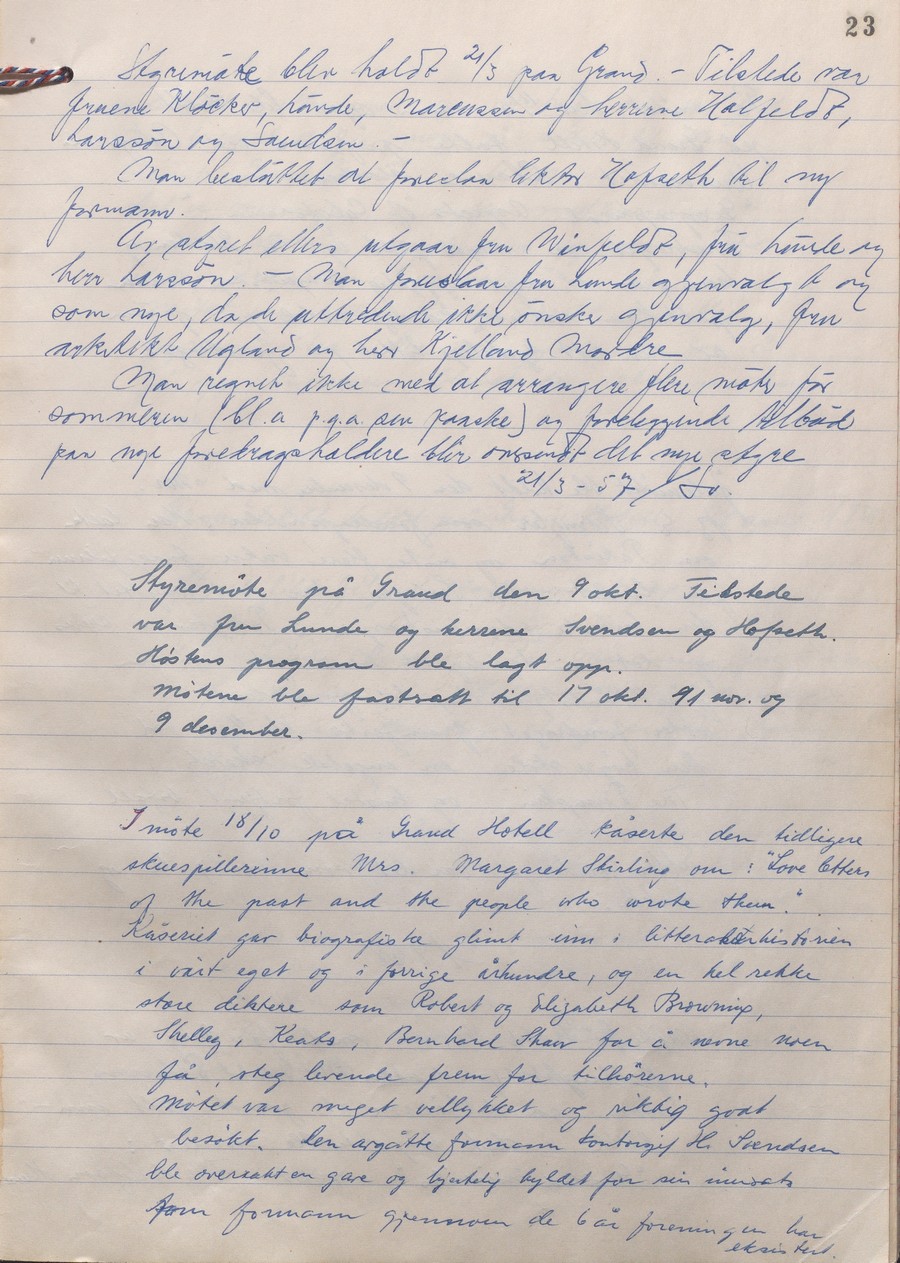 23
Styremöte blev holdt 21/3 paa Grand. – Tilstede var
fruene Klöcker, Lunde, Marcussen og herrerne Hatfeldt,
Larssön og Svendsen. –
Man besluttet at foreslaa lektor Hofseth til ny
formann.
Av styret ellers utgaar fru Winfeldt, fru Lunde og
herr Larssön. – Man foreslaar fru Lunde gjenvalgt og
som nye, da de uttredende ikke önsker gjenvalg, fru
arkitekt Ugland og herr Kjelland Mordre
Man regnet ikke med at arrangere flere möter för
sommeren (bl.a p.g.a. sen paaske) og foreliggende tilbud
paa nye foredragsholdere blir overs​endt det nye styre
21/3 - 57 / Sv.
Styremöte på Grand den 9 okt. Tilstede
var fru Lunde og herrene Svendsen og Hofseth.
Höstens program ble lagt opp.
Mötene ble fastsatt til 17 okt. 11 nov. og
9 desember.
I möte 18/10 på Grand Hotell kåserte den tidligere
skuespillerinne Mrs. Margaret Stirling om: "Love letters
of the past and the people who wrote them."
Kåseriet gav biografiske glimt inn i litteraturhistorien
i vårt eget og i forrige århundre, og en hel rekke
store diktere som Robert og Elizabeth Browning,
Shelley, Keats, Bernhard Shaw for å nevne noen
få, steg levende frem for tilhörerne.
Mötet var meget vellykket og riktig godt
besökt. Den avgåtte formann kontorsjef H. Svendsen
ble overrakt en gave og hjertelig hyldet for sin innsats
som formann gjennom de 6 år foreningen har
eksistert.